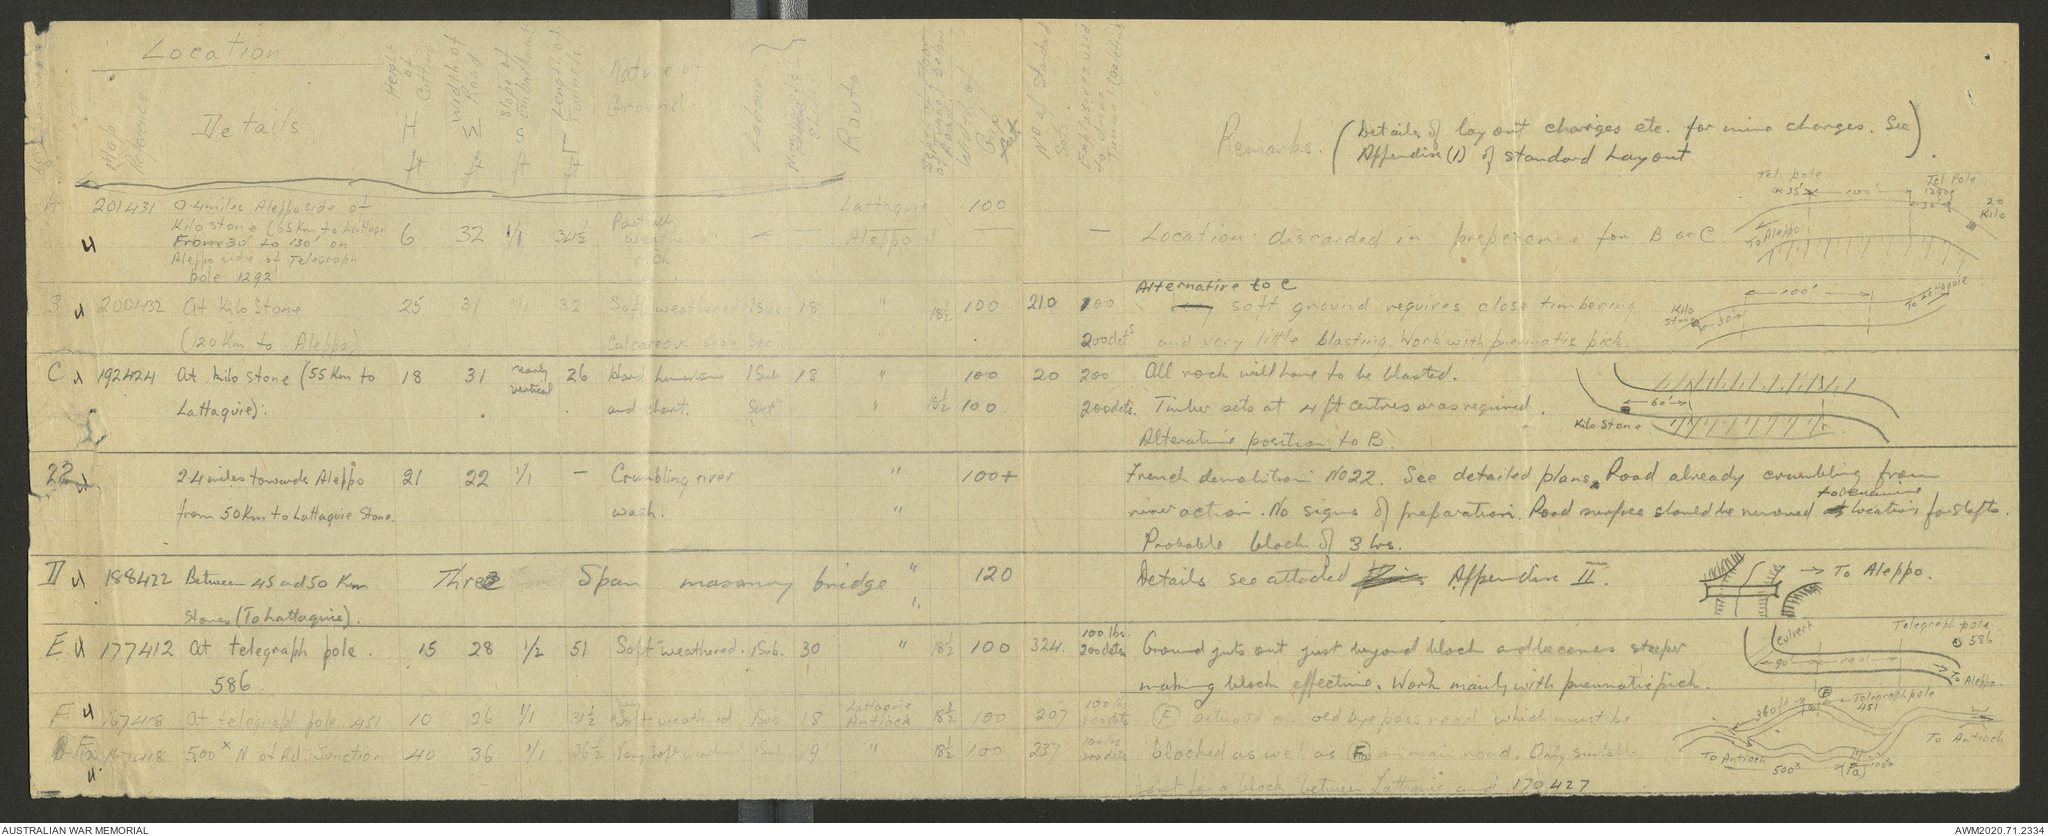 Location
Map Reference
Details
Height of Cutting H ft
Width of Road ft
Slope of Embankment S
Length of Tunnel ft
Nature of Ground
Labour
Shifts
Route
Width of Gap
No of Standard Sets
Explosives used
Remarks. (Details of lay out charges etc. for mine charges. See
Appendix (1) of standard Layout).
A 201431 0.4 miles Aleppo side of
Kilo stone (55 Km to Lattaquie
From 30' to 130' on
Aleppo side of Telegraph
pole 1292
6 32 1/1 34½ Partially weathered rock — Lattaquie Aleppo 100 —
Location discarded in preference for B or C.
Tel. pole 100' Tel Pole 1292 20 Kilo
To Aleppo
B 200432 At Kilo Stone
(120 Km to Aleppo)
25 31 1/1 32 Soft weathered 1 Sub 18 " 18½ 100 210 100
200 dets
Alternative to C
soft ground requires close timbering
and very little blasting. Work with pneumatic pick.
Kilo Stone 30' 100' To Lattaquie
C 192424 At kilo stone (55 Km to
Lattaquie).
18 31 nearly vertical 26 Hard limestone
and chert.
1 Sub. Sect 18 " 18½ 100 100 20 200
200 dets.
All rock will have to be blasted.
Timber sets at 4 ft centres or as required.
Alternative position to B.
60' Kilo Stone
22 2.4 miles towards Aleppo
from 50 Km to Lattaquie Stone.
21 22 1/1 — Crumbling river
wash.
" " 100+
French demolition No 22. See detailed plans. Road already crumbling from
river action. No signs of preparation. Road surface should be removed to examine locations for shafts.
Probable block of 3 hrs.
D 188422 Between 45 and 50 Km
Stones (To Lattaquie).
Three Span masonry bridge " " 120
Details see attached Appendix II.
To Aleppo.
E 177412 At telegraph pole.
586.
15 28 1/2 51 Soft weathered. 1 Sub. 30 " 18½ 100 324. 100 lbs.
200 dets
Ground juts out just beyond block and becomes steeper
making block effective. Work mainly with pneumatic pick.
Culvert Telegraph pole 586
90' 100' To Aleppo.
F 167418 At telegraph pole 451 10 26 1/1 31½ Soft weathered 1 Sub 18 Lattaquie Antioch 18½ 100 207 100 lbs
200 dets
(F) actuated on old bypass road which must be
360 ft (F) Telegraph pole 451
Fa 167418 500x N of Rd. Junction 40 36 1/1 36½ Very soft weathered 1 Sub. 19 " 18½ 100 237 100 lbs
200 dets
blocked as well as (Fa) on main road. Only suitable
point for a block between Lattaquie and 170427
To Antioch 500x (Fa) 100' To Antioch
AUSTRALIAN WAR MEMORIAL
AWM2020.71.2334